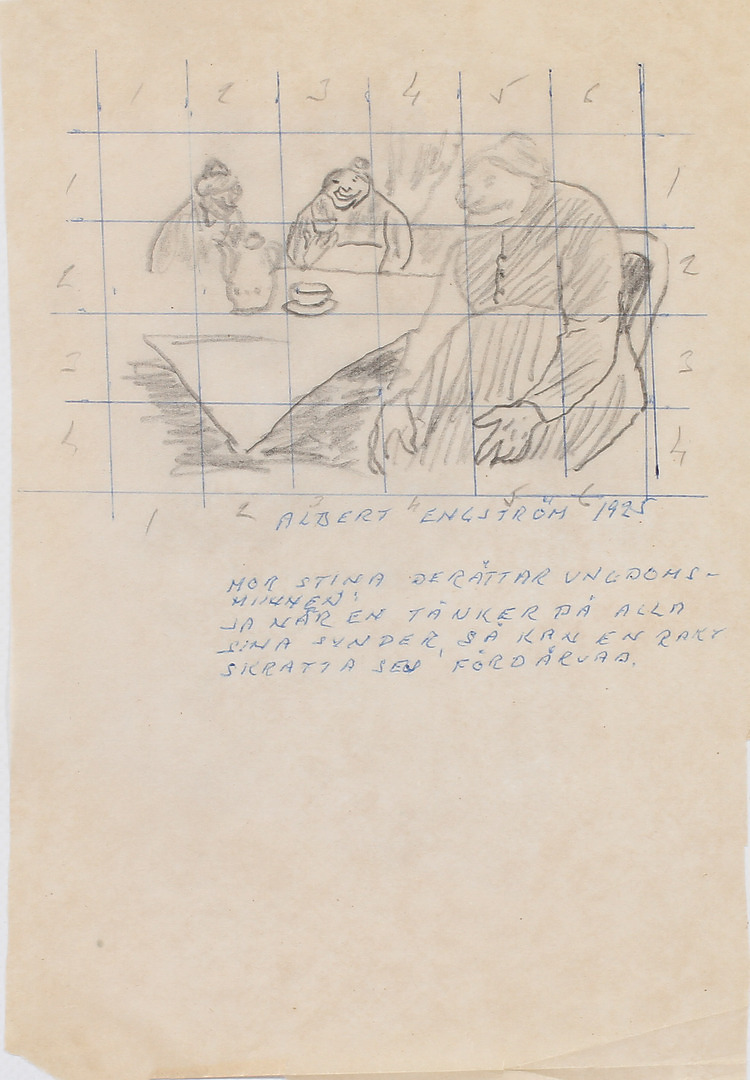 1 2 3 4 5 6
1 1
2 2
3 3
4 4
1 2 3 4 5 6
ALBERT ENGSTRÖM 1925
MOR STINA BERÄTTAR UNGDOMS-
MINNEN:
JA NÄR EN TÄNKER PÅ ALLA
SINA SYNDER, SÅ KAN EN RAKT
SKRATTA SEJ FÖRDÄRVAD.